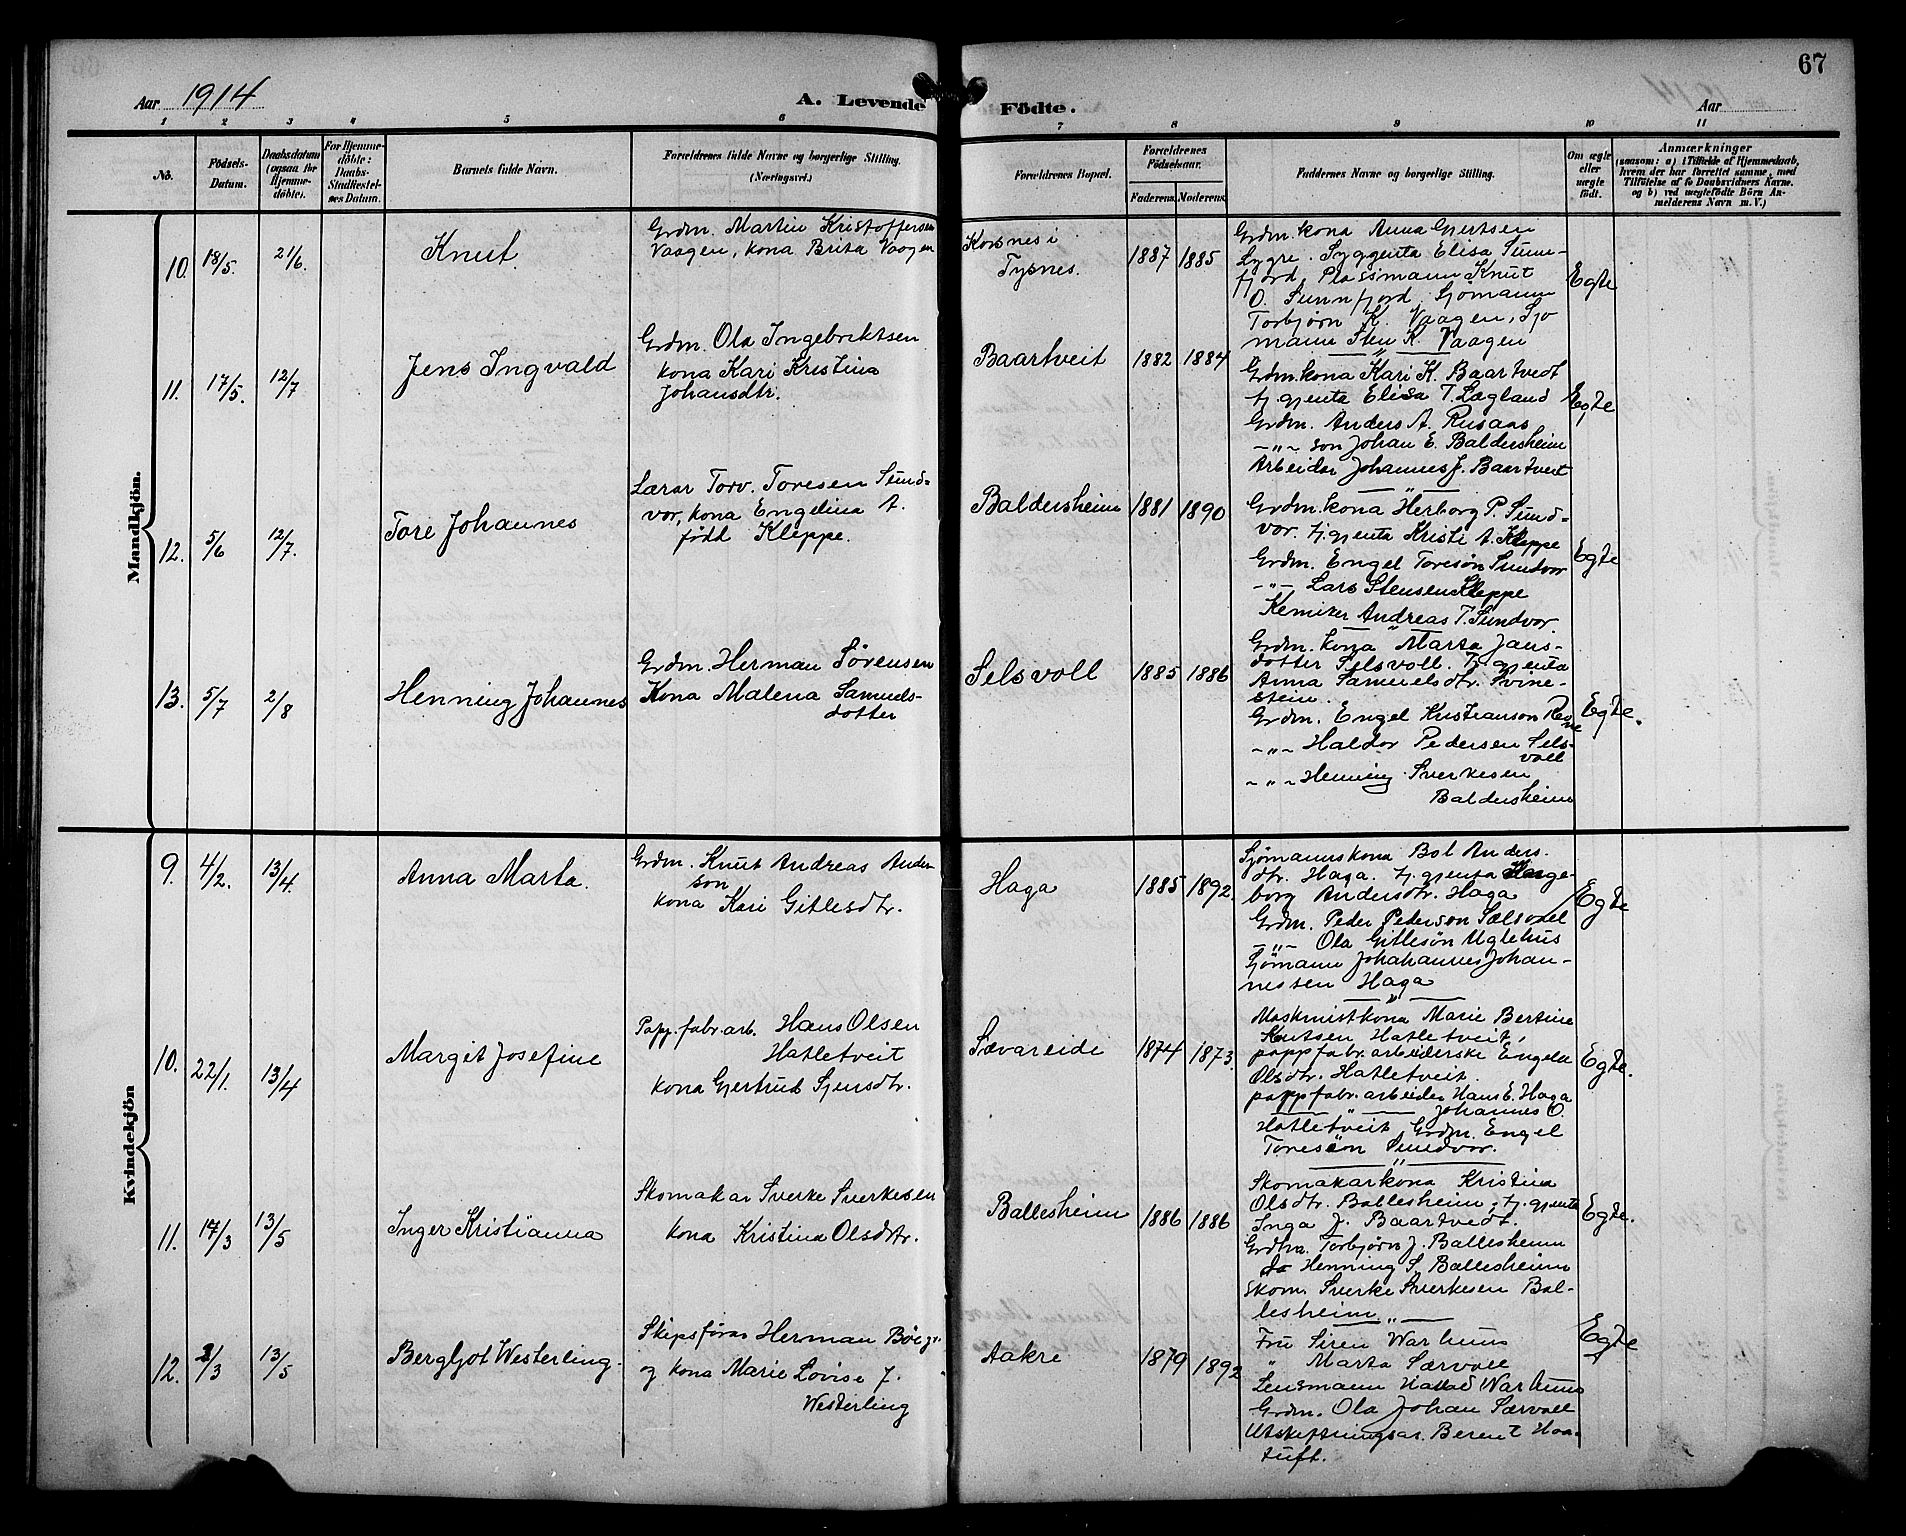 67
Aar 1914
A. Levende
Födte.
Aar
1 2 3 4 5 6 7 8 9 10 11
No.
Födsels-Datum.
Daabsdatum (ogsaa for Hjemmedöbte).
For Hjemmedöbte: Daabs-Stadfæstelses Datum.
Barnets fulde Navn.
Forældrenes fulde Navne og borgerlige Stilling.
(Næringsvei.)
Forældrenes Bopæl.
Forældrenes Födselsaar.
Faderens. Moderens.
Faddernes Navne og borgerlige Stilling.
Om ægte eller uægte födt.
Anmærkninger
(saasom: a) i Tilfælde af Hjemmedaab, hvem der har forrettet samme, med Tilföielse af to Daabsvidners Navne, og b) ved uægtefödte Börn Anmelderens Navn m. V.)
Mandkjön.
10. 18/5. 21/6.
Knut.
Grdm. Martin Kristoffersen
Vaagen, kona Brita Vaagen
Korsnes i
Tysnes.
1887 1885
Grdm. kona Anna Gjertsen
Lygre. Syggjenta Elisa Sunn-
fjord, Plassmann Knut
O. Sunnfjord, Sjømann
Torbjørn K. Vaagen, Sjø
mann Sten K. Vaagen
Egte
11. 17/5. 12/7
Jens Ingvald
Grdm. Ola Ingebriktsen
kona Kari Kristina
Johansdtr.
Baartveit
1882 1884
Grdm. kona Kari K. Baartvedt
tj. gjenta Elisa T. Lægland
Grdm. Anders A. Rusaas
-"- son Johan E. Baldersheim
Arbeider Johannes J. Baartveit
Egte
12. 5/6 12/7.
Tore Johannes
Lærar Torv. Toresen Sund-
vor, kona Engelina A.
født Kleppe.
Baldersheim
1881 1890
Grdm. kona Herborg P. Sund-
vor. tj. gjenta Kristi A. Kleppe
Grdm. Engel Toresøn Sundvor
-"- Lars Stensen Kleppe
Kemiker Andreas T. Sundvor.
Egte
13. 5/7 2/8
Henning Johannes
Grdm. Herman Sørensen
Kona Malena Samuels-
dotter
Selsvoll
1885 1886
Grdm. kona Marta Jans-
dotter Selsvoll. Tj. gjenta
Anna Samuelsdtr. Svine-
stein.
Grdm. Engel Kristianson Rene
-"- Haldor Pedersen Sels-
voll
-"- Henning Sverkesen
Baldersheim
Egte.
Kvindekjön
9. 4/2. 13/4.
Anna Marta.
Grdm. Knut Andreas Ander
son
kona Kari Gitlesdtr.
Haga
1885 1892.
Sjømannskona Bol Anders.
dtr. Haga. tj. gjenta Inge-
borg Andersdtr. Haga
Grdm. Peder Pederson Sælsvoll
-"- Ola Gitlesøn Uglehus
Sjømann Johahannes Johan-
nessen Haga
Egte
10. 22/1. 13/4
Margit Josefine
Papp. fabr. arb. Hans Olsen
Hatletveit
kona Gjertrud Sjursdtr.
Sævareide
1874 1873.
Maskinistkona Marie Bertine
Knutsen Hatletveit,
pappfabr. arbeiderske Engela
Olsdtr. Hatletveit.
pappfabr. arbeider Hans E. Haga
-"- Johannes O.
Hatletveit, Grdm. Engel
Toresøn Sundvor.
Egte.
11. 17/3 13/5
Inger Kristianna
Skomakar Sverke Sverkesen
kona Kristina Olsdtr.
Ballesheim
1886 1886
Skomakarkona Kristina
Olsdtr. Ballesheim, tj. gjenta
Inga J. Baartvedt.
Grdm. Torbjørn J. Ballesheim
do Henning S. Ballesheim
Skom. Sverke Sverkesen Bal-
lesheim
Egte.
12. 2/3 13/5
Bergljot Westerling.
Skipsførar Herman Böe
og kona Marie Lovise J.
Westerling
Aakre
1879 1892
Fru Siren Warhuus
" Marta Særvoll
Lensmann Warhuus
Grdm. Ola Johan Særvoll
Utskiftningsar. Berent Haa-
tuft.
Egte